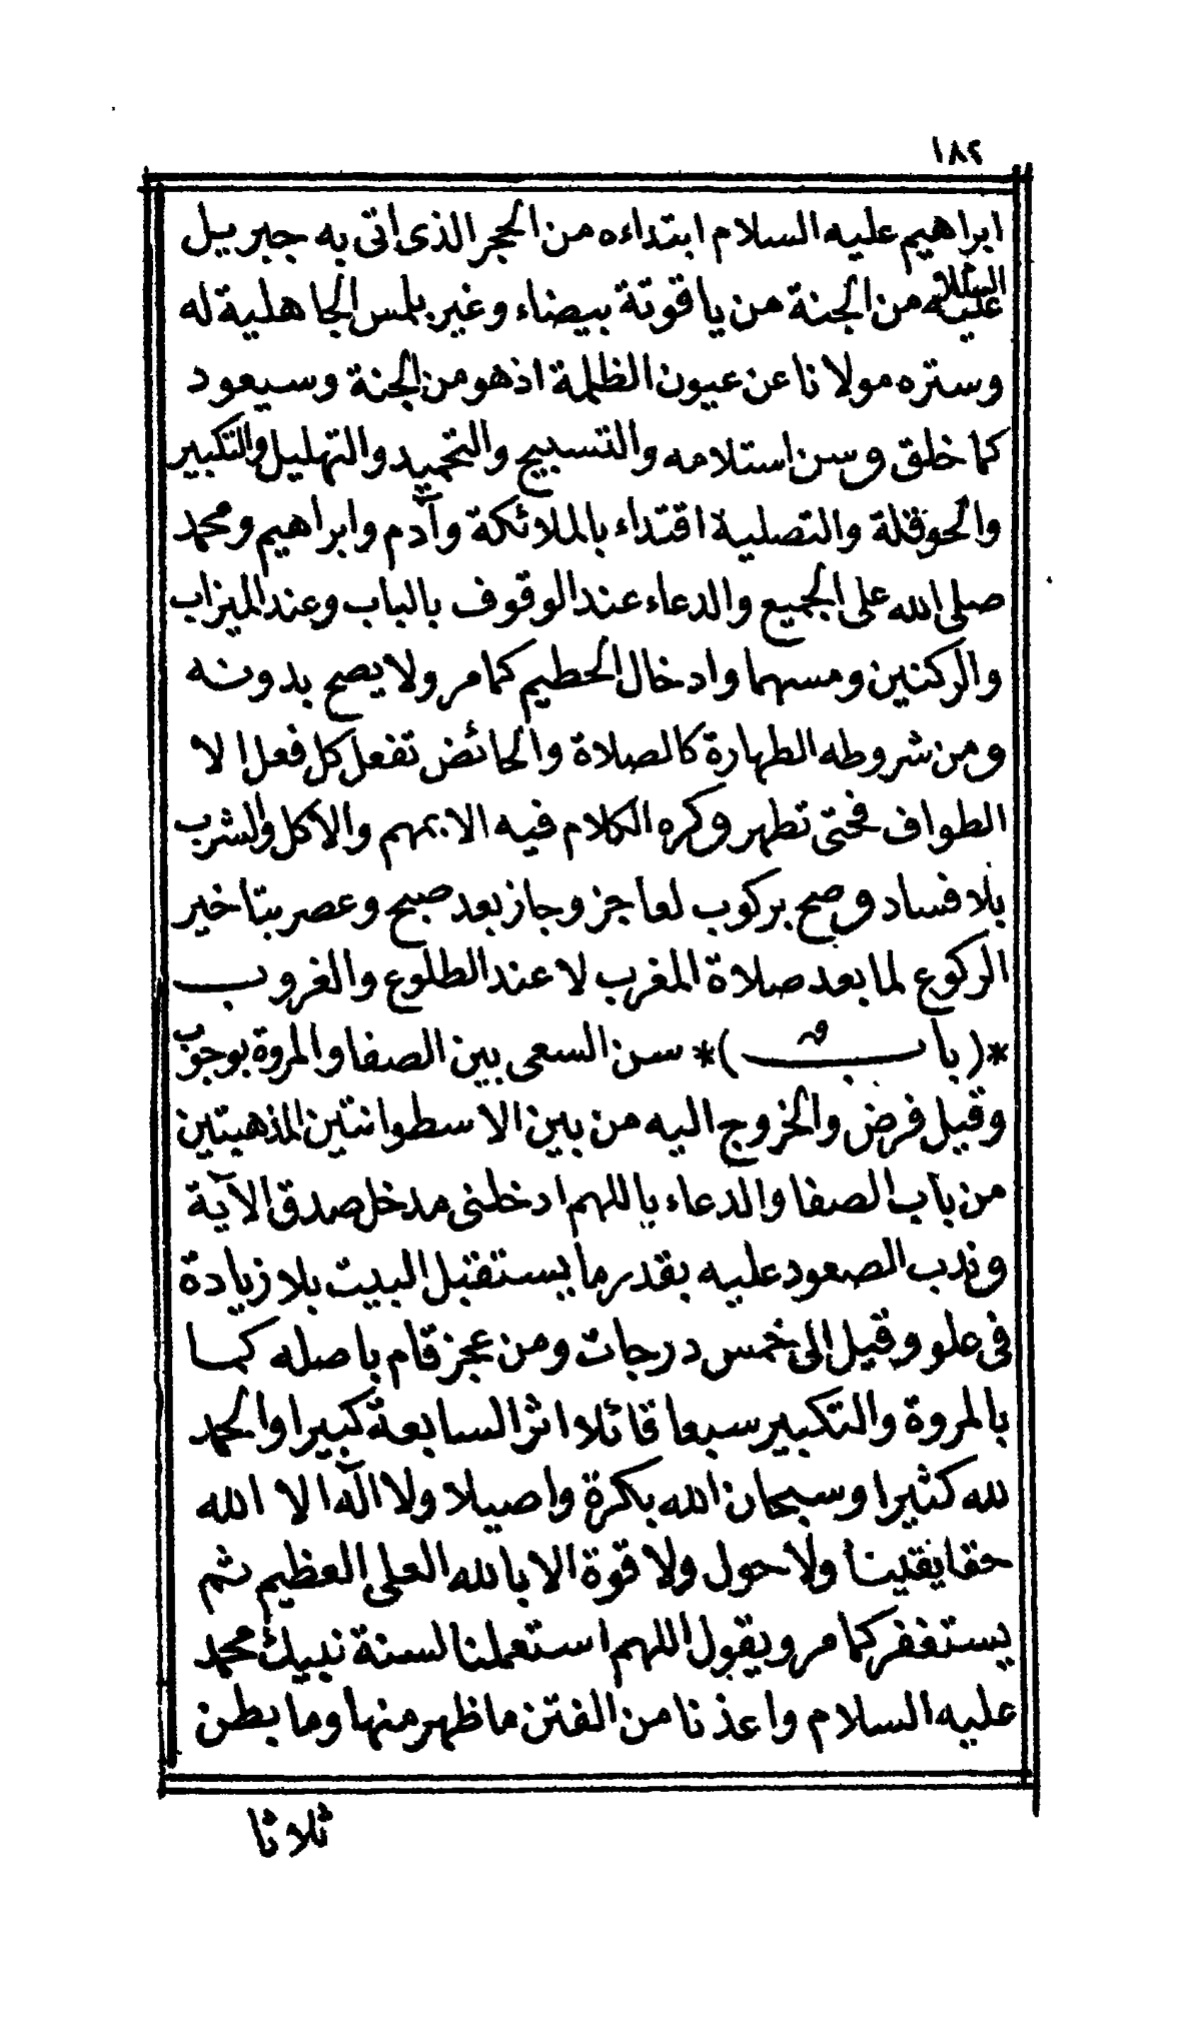 ١٨٢
ابراهيم عليه السلام ابتداءه من الحجر الذى اتى به جبريل
عليه السلام من الجنة من ياقوتة بيضاء وغير بلمس الجاهلية له
وستره مولانا عن عيون الظلمة اذ هو من الجنة وسيعود
كما خلق وسن استلامه والتسبيح والتحميد والتهليل والتكبير
والحوقلة والتصلية اقتداء بالملائكة وآدم وابراهيم ومحمد
صلى الله على الجميع والدعاء عند الوقوف بالباب وعند الميزاب
والركنين ومسهما وادخال الحطيم كما مر ولا يصح بدونه
ومن شروطه الطهارة كالصلاة والحائض تفعل كل فعل الا
الطواف فحتى تطهر وكره الكلام فيه الا بمهم والاكل والشرب
بلا فساد وصح بركوب لعاجز وجاز بعد صبح وعصر بتاخير
الركوع لما بعد صلاة المغرب لا عند الطلوع والغروب
*(باب)* سن السعى بين الصفا والمروة بوجوب
وقيل فرض والخروج اليه من بين الاسطوانتين المذهبتين
من باب الصفا والدعاء باللهم ادخلنى مدخل صدق الآية
وندب الصعود عليه بقدر ما يستقبل البيت بلا زيادة
فى علو وقيل الى خمس درجات ومن عجز قام باصله كما
بالمروة والتكبير سبعا قائلا اثر السابعة كبيرا والحمد
لله كثيرا وسبحان الله بكرة واصيلا ولا اله الا الله
حقا يقينا ولا حول ولا قوة الا بالله العلى العظيم ثم
يستغفر كما مر ويقول اللهم استعملنا لسنة نبيك محمد
عليه السلام واعذنا من الفتن ما ظهر منها وما بطن
ثلاثا